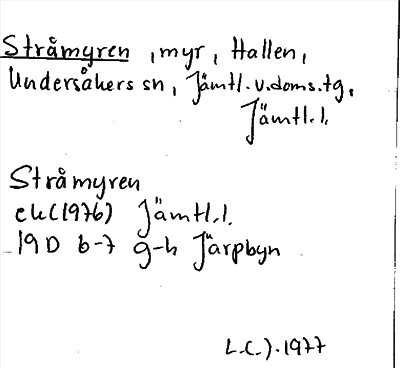 Stråmyren, myr, Hallen,
Undersåkers sn, Jämtl. v. doms. tg,
Jämtl. l.
Stråmyren
ek (1976) Jämtl. l.
19D 6-7 g-h Järpbyn
1977